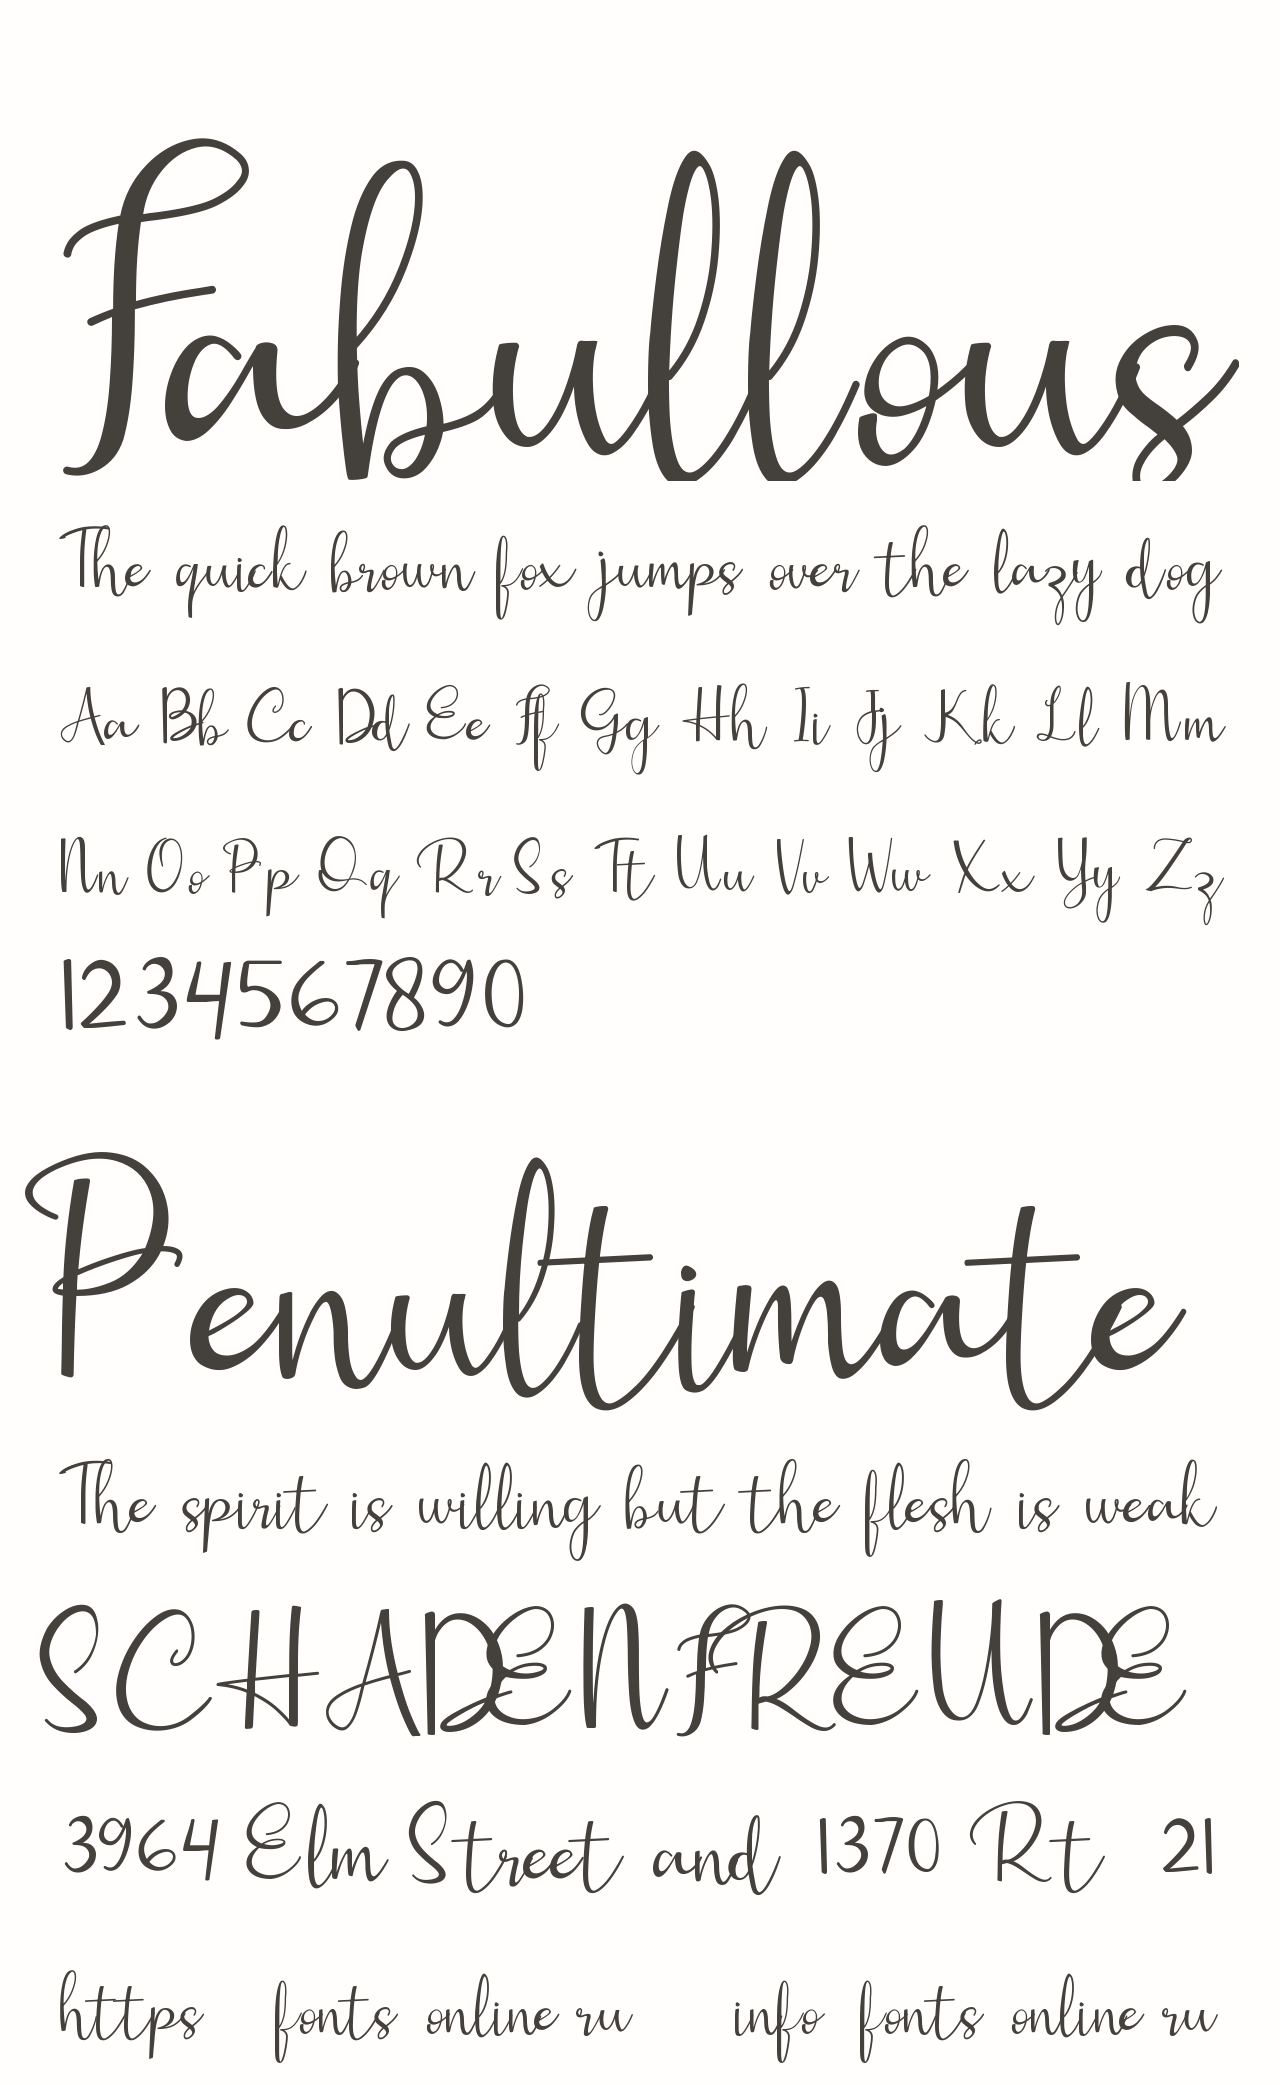 Fabullous
The quick brown fox jumps over the lazy dog
Aa Bb Cc Dd Ee Ff Gg Hh Ii Jj Kk Ll Mm
Nn Oo Pp Qq Rr Ss Tt Uu Vv Ww Xx Yy Zz
1234567890
Penultimate
The spirit is willing but the flesh is weak
SCHADENFREUDE
3964 Elm Street and 1370 Rt 21
https fonts online ru info fonts online ru